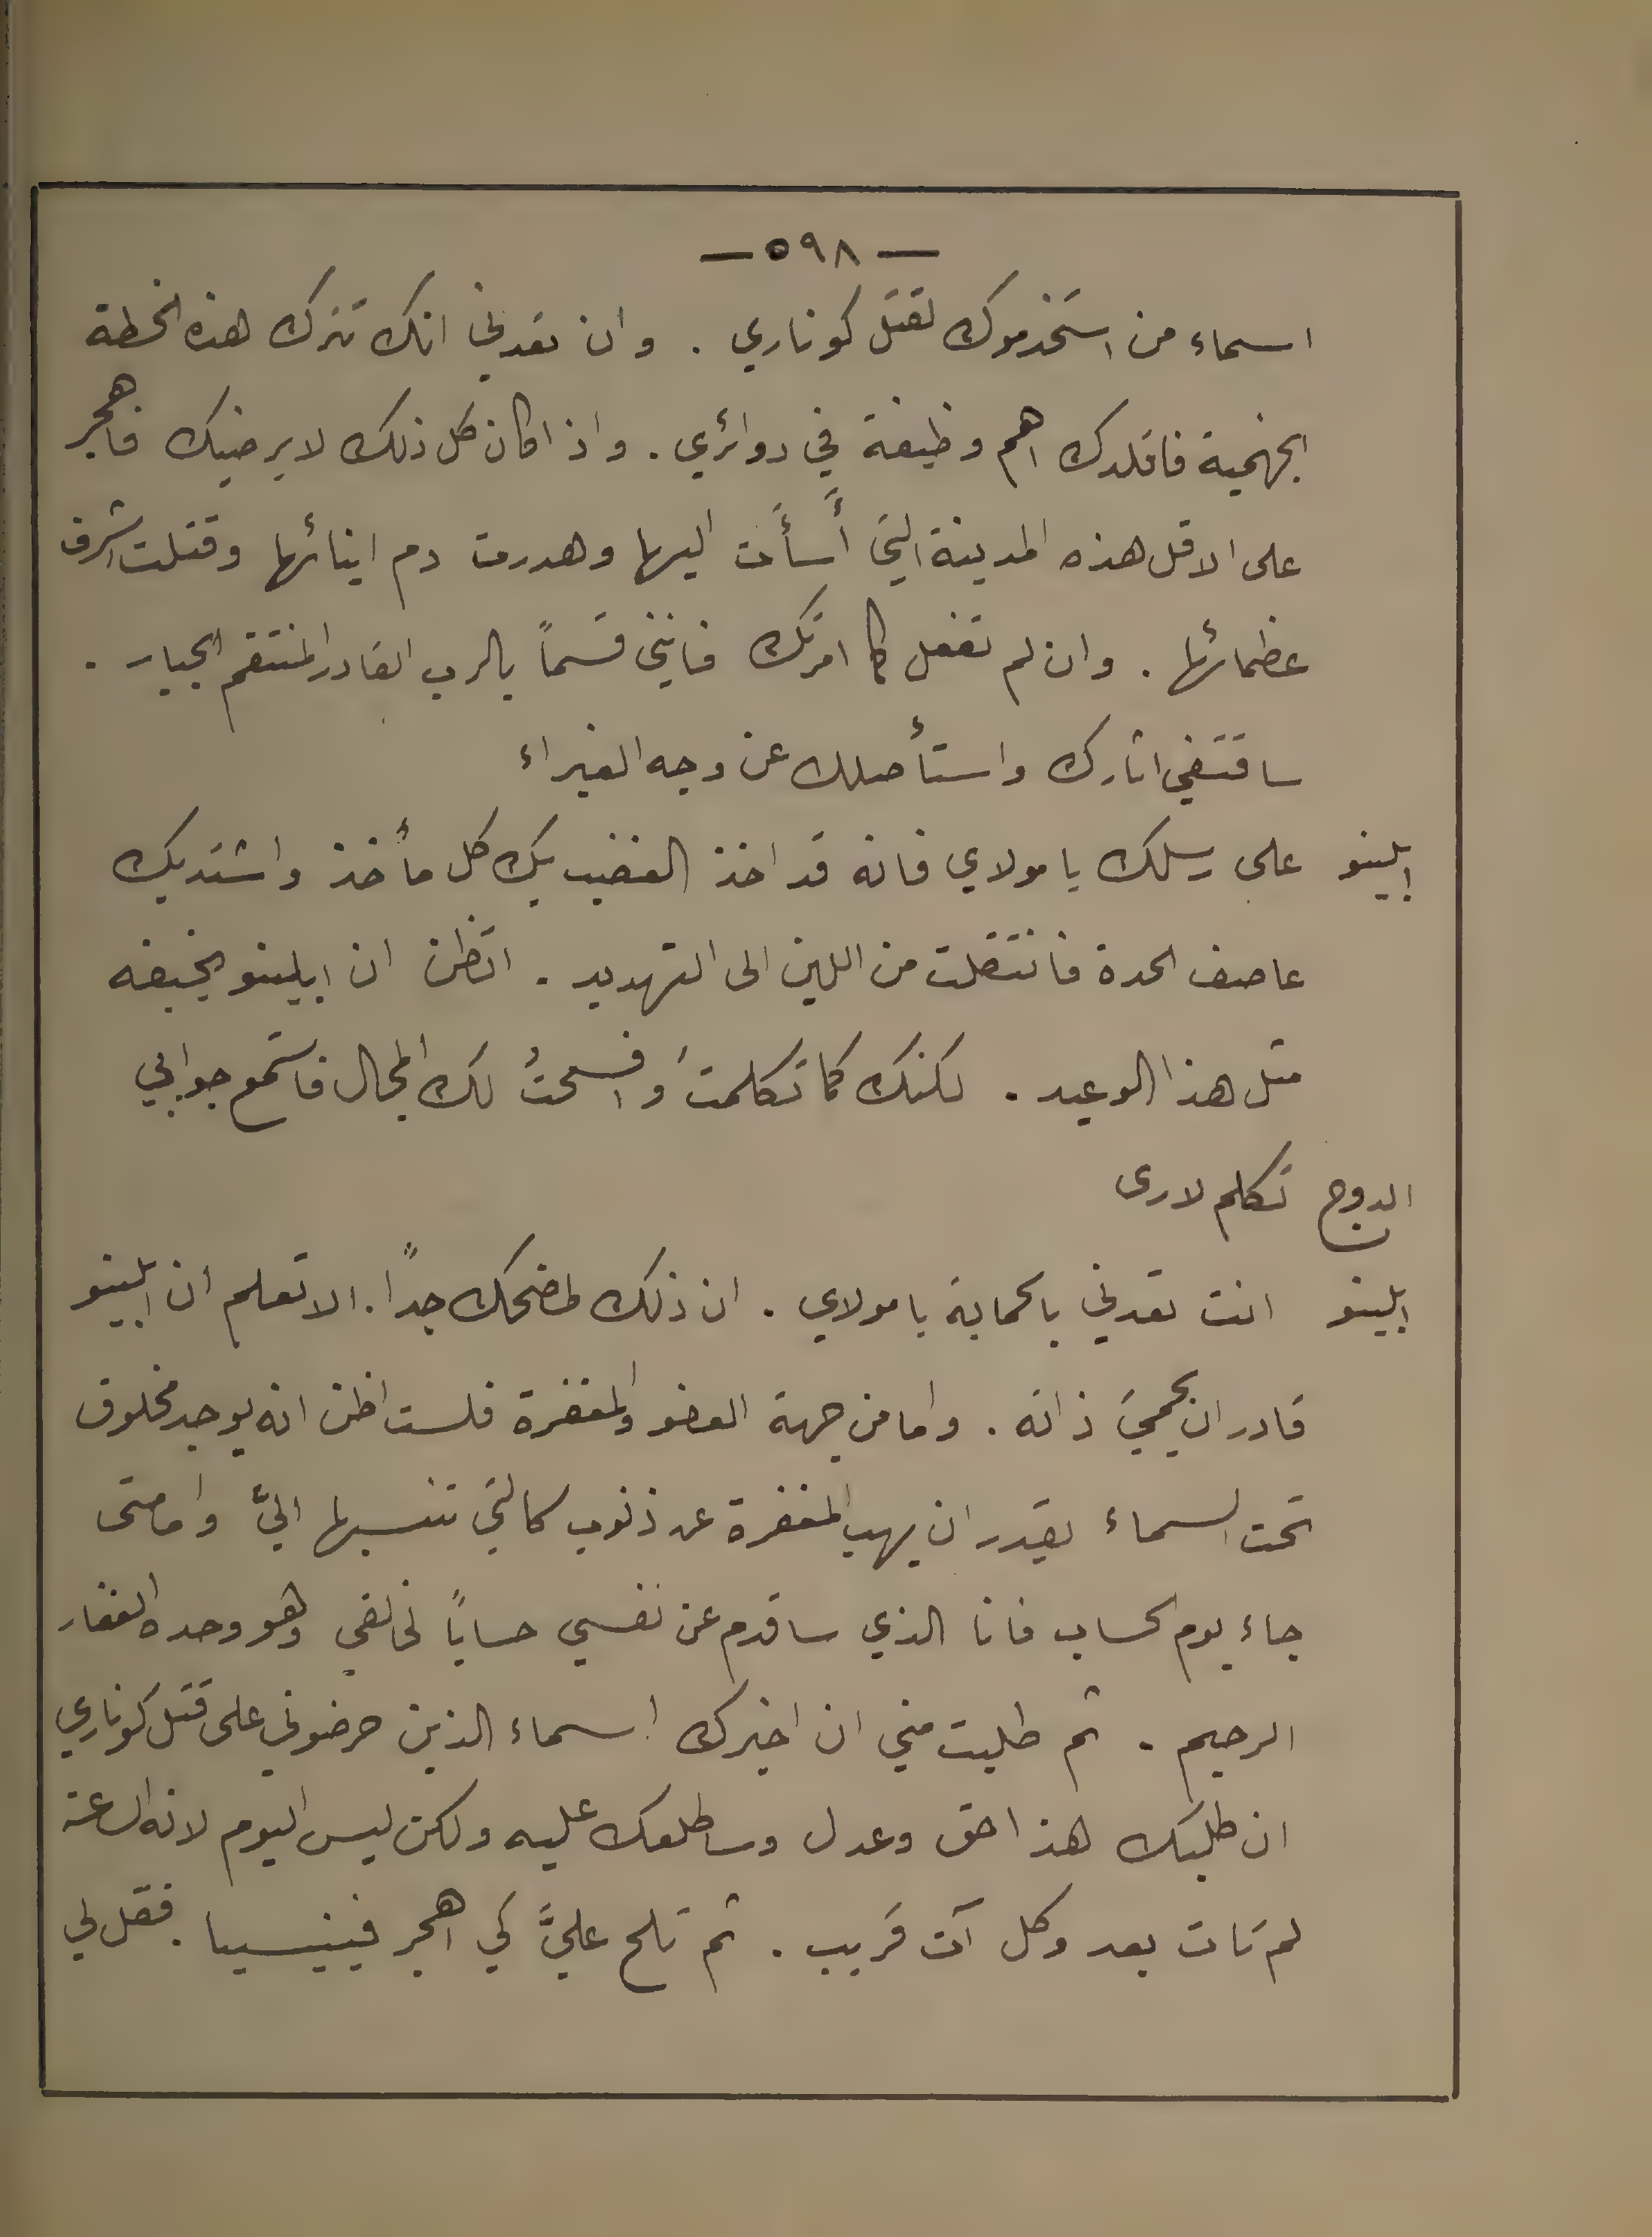 — ٥٩٨ —
اسماء من استخدموك لقتل كوناري . وان تعدني انك تترك هذه الخطة
الجهنمية فاقلدك اهم وظيفة في دوائري . واذا كان كل ذلك لا يرضيك فاهجر
على الاقل هذه المدينة التي أسأت اليها وهدرت دم ابنائها وقتلت اشرف
عظمائها . وان لم تفعل كما امرتك فانني قسماً بالرب القادر المنتقم الجبار .
ساقتفي اثارك واستأصلك عن وجه الغبراء
ابلينو على رسلك يا مولاي فانه قد اخذ الغضب بك كل مأخذ واشتد بك
عاصف الحدة فانتقلت من اللين الى التهديد . اتظن ان ابيلينو يخيفه
مثل هذا الوعيد . لكنك كما تكلمتَ وافسحتُ لك المجال فاستمع جوابي
الدوج تكلم لارى
ابلينو انت تعدني بالحماية يا مولاي . ان ذلك لمضحك جداً . الا تعلم ان ابلينو
قادر ان يحمي ذاته . واما من جهة العفو والمغفرة فلست اظن انه يوجد مخلوق
تحت السماء يقدر ان يهب المغفرة عن ذنوب كالتي تنسبها اليَّ وامتى
جاء يوم الحساب فانا الذي ساقدم عن نفسي حساباً لخالقي وهو وحده الغفار
الرحيم . ثم طلبت مني ان اخبرك اسماء الذين حرضوني على قتل كوناري
ان طلبك هذا حق وعدل وساطلعك عليه ولكن ليس اليوم لانه الساعة
لم تات بعد وكل آت قريب . ثم تلح عليَّ كي اهجر فينيسيا . فقل لي